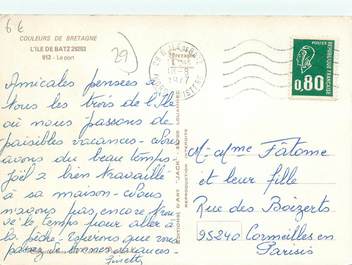 6€
COULEURS DE BRETAGNE
L'ILE DE BATZ 29253
912 - Le port
29)
POSTES
0,80
FRANCE
Amicales pensées à
vous les trois de l'Ile
où nous passons de
paisibles vacances - Nous
avons du beau temps -
Joël a bien travaillé
à sa maison - Nous
n'avons pas encore trou
vé le temps pour aller à
la pêche - Espérons que vous
passez de bonnes vacances -
Ginette
EDITIONS D'ART "JACK"
REPRODUCTION INTERDITE
M. Mme Fâtome
et leur fille
Rue des Boizerts
95240 Cormeilles en
Parisis